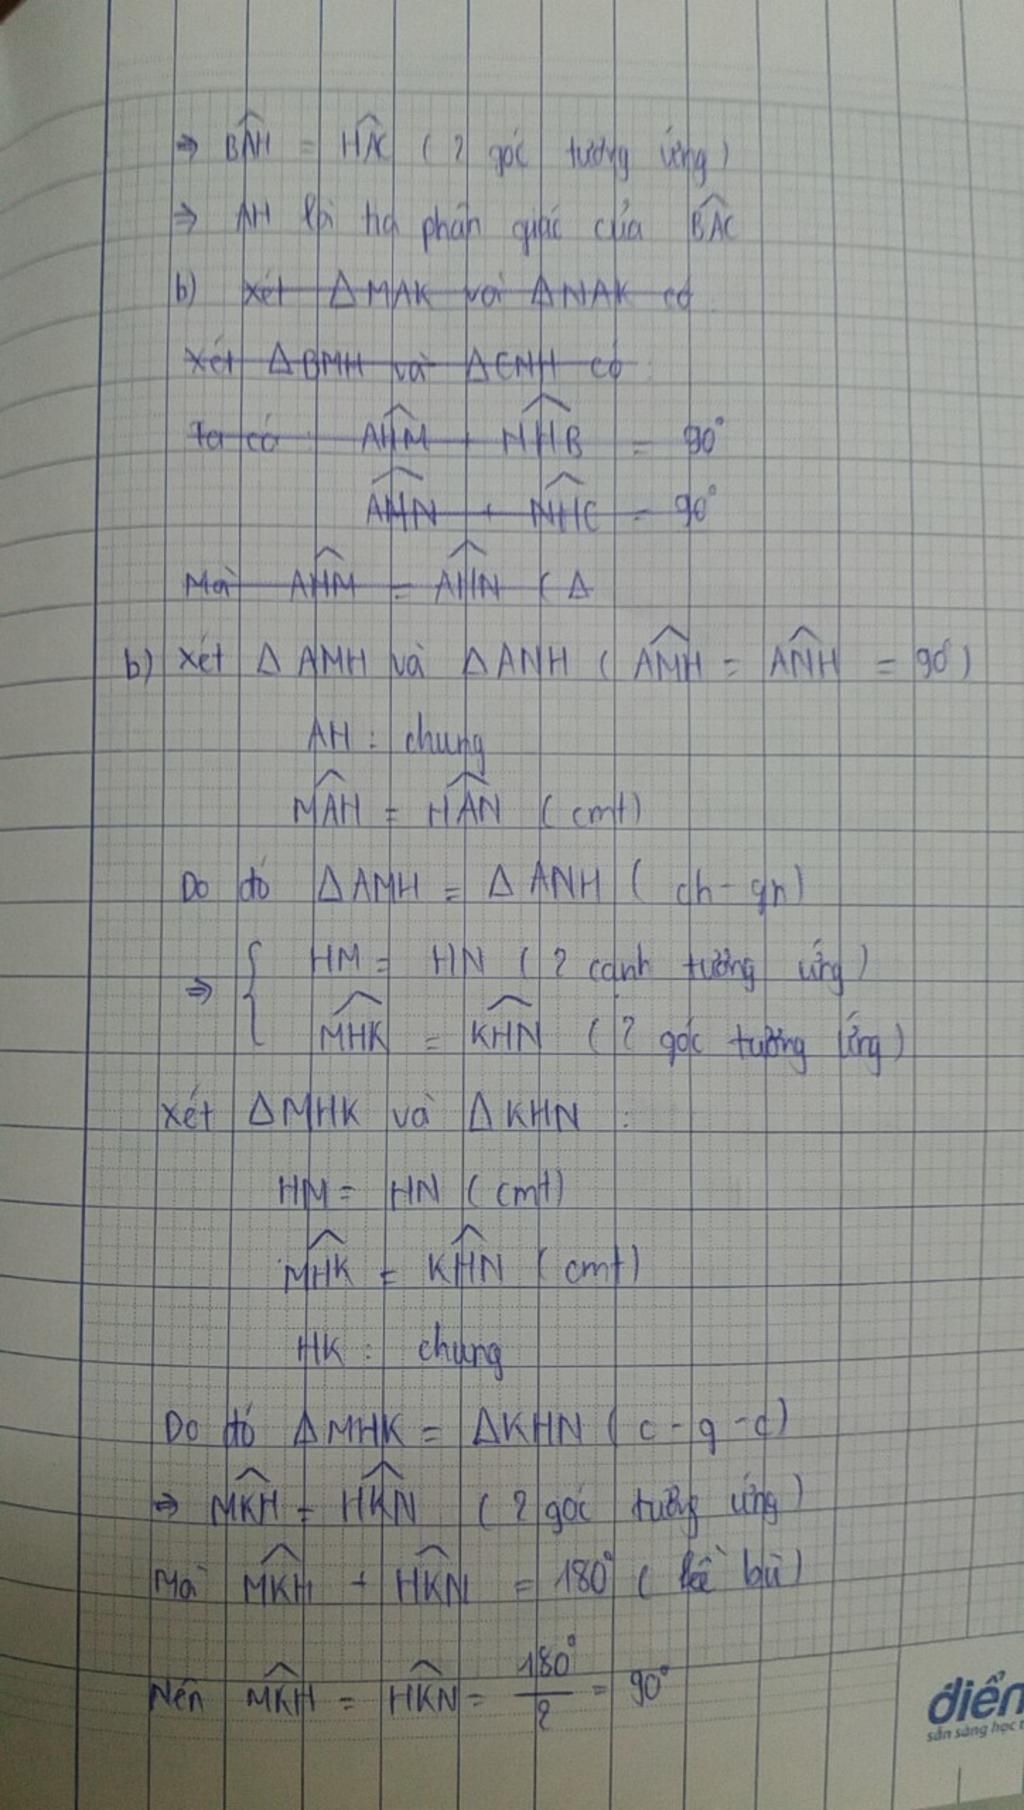 ⇒ BÂH = HÂC ( 2 góc tương ứng)
⇒ AH là tia phân giác của BÂC
b) Xét ΔMAK và ΔNAK có
Xét ΔBMH và ΔCNH có
Ta có : AĤM + MĤB = 90°
AĤN + NĤC = 90°
Mà AĤM = AĤN ( Δ
b) Xét Δ AMH và Δ ANH ( AM̂H = AN̂H = 90°)
AH : chung
MÂH = HÂN ( cmt)
Do đó ΔAMH = Δ ANH ( ch - gn)
⇒ { HM = HN ( 2 cạnh tương ứng)
MĤK = KĤN ( 2 góc tương ứng)
Xét ΔMHK và ΔKHN :
HM = HN ( cmt)
MĤK = KĤN ( cmt)
HK : chung
Do đó ΔMHK = ΔKHN ( c - g - c)
⇒ MK̂H = HK̂N ( 2 góc tương ứng)
Mà MK̂H + HK̂N = 180° ( kề bù)
Nên MK̂H = HK̂N = 180°/2 = 90°
điểm
sẵn sàng học t